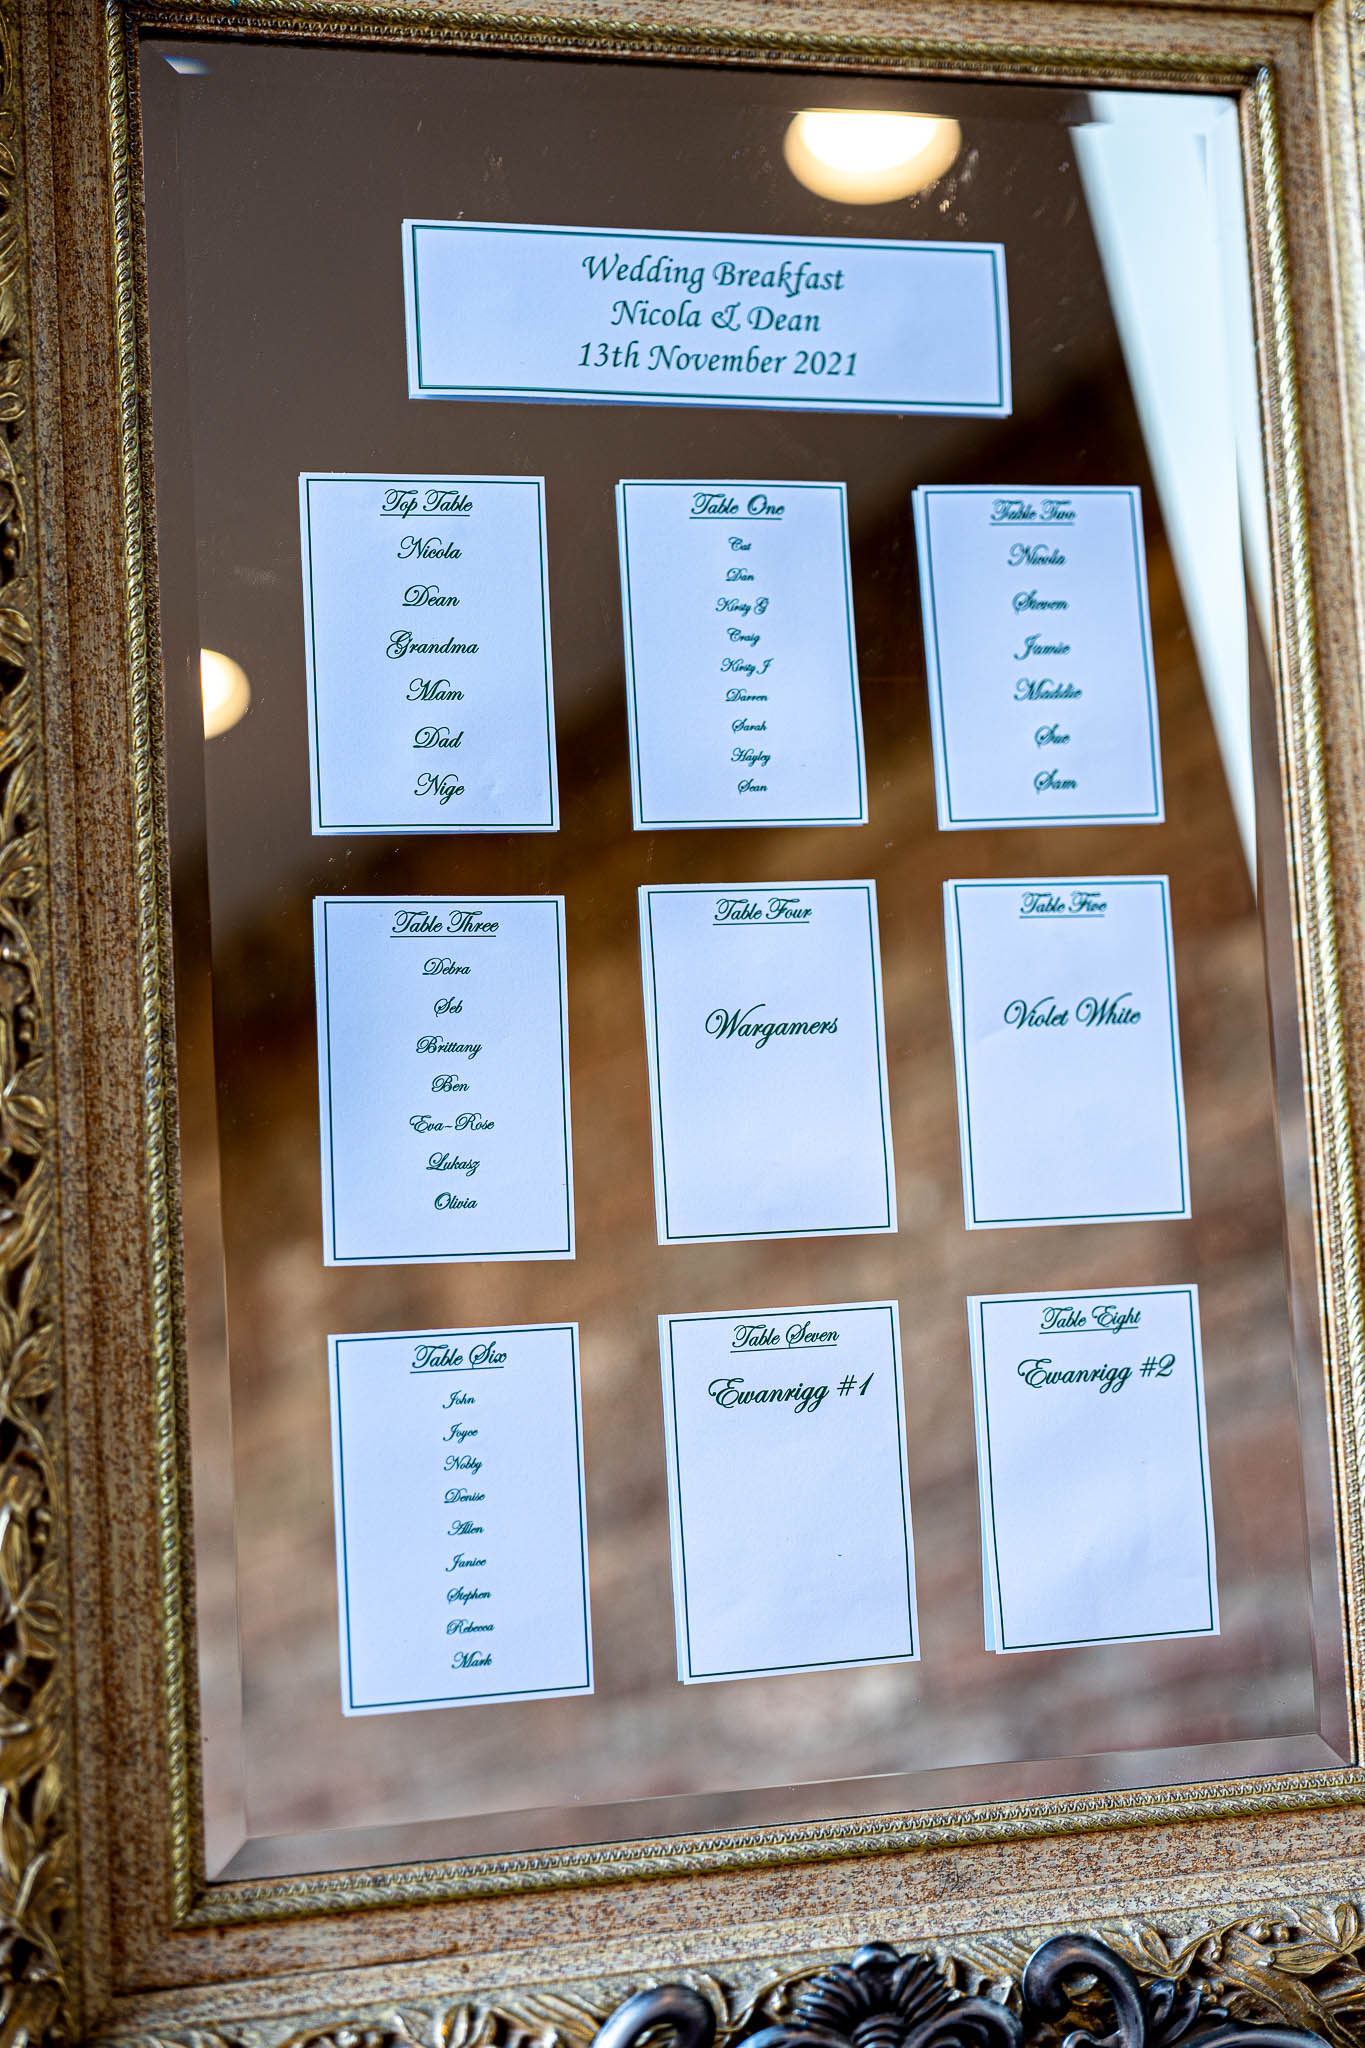 Wedding Breakfast
Nicola & Dean
13th November 2021
Top Table
Nicola
Dean
Grandma
Mam
Dad
Nige
Table One
Cat
Dan
Kirsty G
Craig
Kirsty J
Darren
Sarah
Hayley
Sean
Table Two
Nicola
Steven
Jamie
Maddie
Sue
Sam
Table Three
Debra
Seb
Brittany
Ben
Eva-Rose
Lukasz
Olivia
Table Four
Wargamers
Table Five
Violet White
Table Six
John
Joyce
Nobby
Denise
Allen
Janice
Stephen
Rebecca
Mark
Table Seven
Ewanrigg #1
Table Eight
Ewanrigg #2